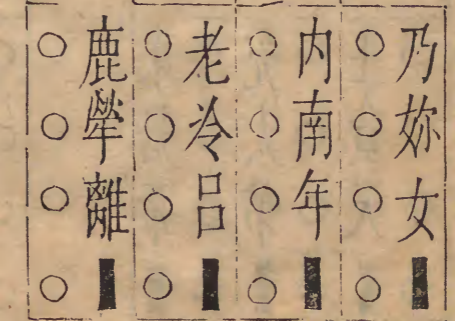 乃妳女■
○○○○
内南年■
○○○○
老冷呂■
○○○○
鹿犖離■
○○○○